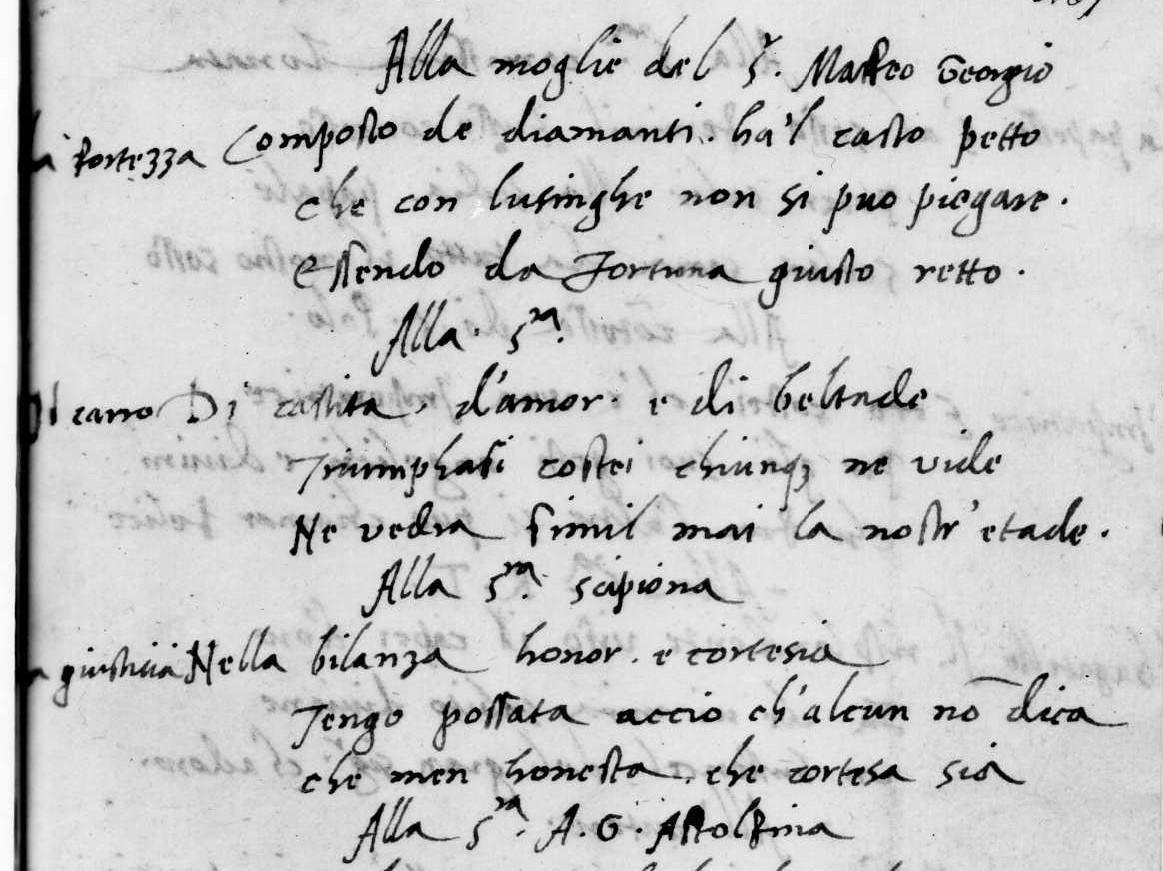 Alla moglie del S.r Matteo Georgio
La fortezza Composto de diamanti. ha'l casto petto
che con lusinghe non si puo piegare.
Essendo da Fortuna giusto retto.
Alla. S.ra
Il carro Di castita, d'amor. e di beltade
Triumphasi costei chiunq; ne vide
Ne vedra simil mai la nostr'etade.
Alla S.ra Scipiona
La giustitia Nella bilanza honor. e cortesia
Tengo possata accio ch'alcun nō dica
che men honesta. che cortesa sia
Alla S.ra A. G. Astolfina